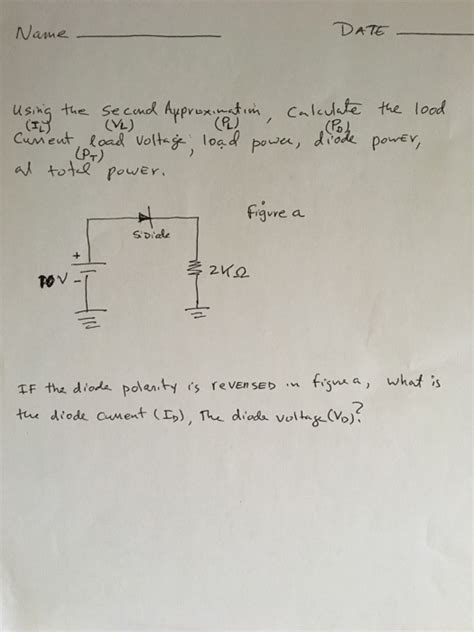 Name ____________ DATE ______
Using the Second Approximation, Calculate the load
(IL) (VL) (PL) (PD)
Current, load voltage, load power, diode power,
(PT)
al total power.
figure a
Si Diode
+
10V
-
2KΩ
IF the diode polarity is revensed in figure a, what is
the diode current (ID), The diode voltage (VD)?